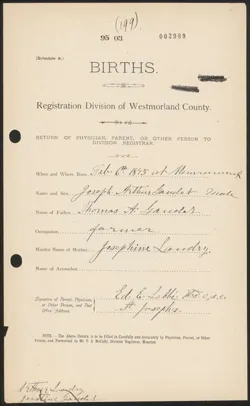 (199)
95 03 002909
(Schedule B.)
BIRTHS.
Registration Division of Westmorland County.
RETURN OF PHYSICIAN, PARENT, OR OTHER PERSON TO
DIVISION REGISTRAR.
When and Where Born, Feb 6th 1895 at Memramcook
Name and Sex, Joseph Arthur Gaudet Male
Name of Father, Thomas A. Gaudet
Occupation, farmer
Maiden Name of Mother, Josephine Landry
Name of Accoucheur,
Signature of Parent, Physician,
or Other Person, and Post
Office Address.
Ed. E. Labbé
St Josephs
NOTE.—The Above Details to be Filled in Carefully and Accurately by Physician, Parent, or Other
Person, and Forwarded to Division Registrar, Moncton.
Landry